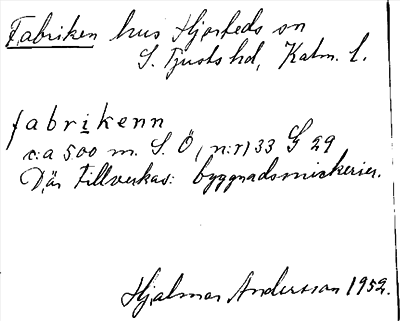 Fabriken hus Hjorteds sn
S. Tjusts hd, Kalm. l.
fabrikenn
c:a 500 m. S. Ö, (n:r) 33 G 29
Där tillverkas: byggnadssnickerier.
Hjalmar Andersson 1952.